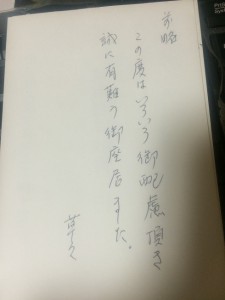 前略
この度はいろいろ御配慮頂き
誠に有難う御座居ました。
草々